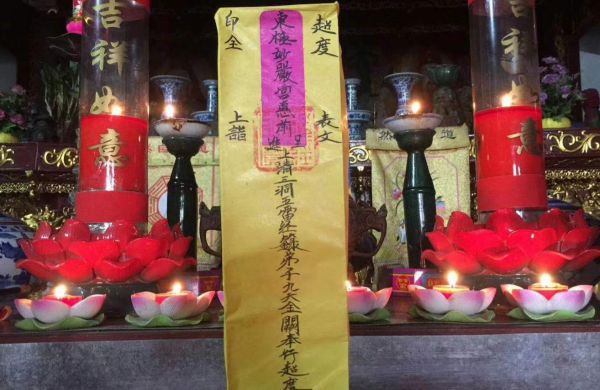 吉祥如意
超度
表文
東極妙嚴宮
呈進
上清三洞五雷經籙弟子九天金闕奉行超度
印全
上詣
祥如意
道
然